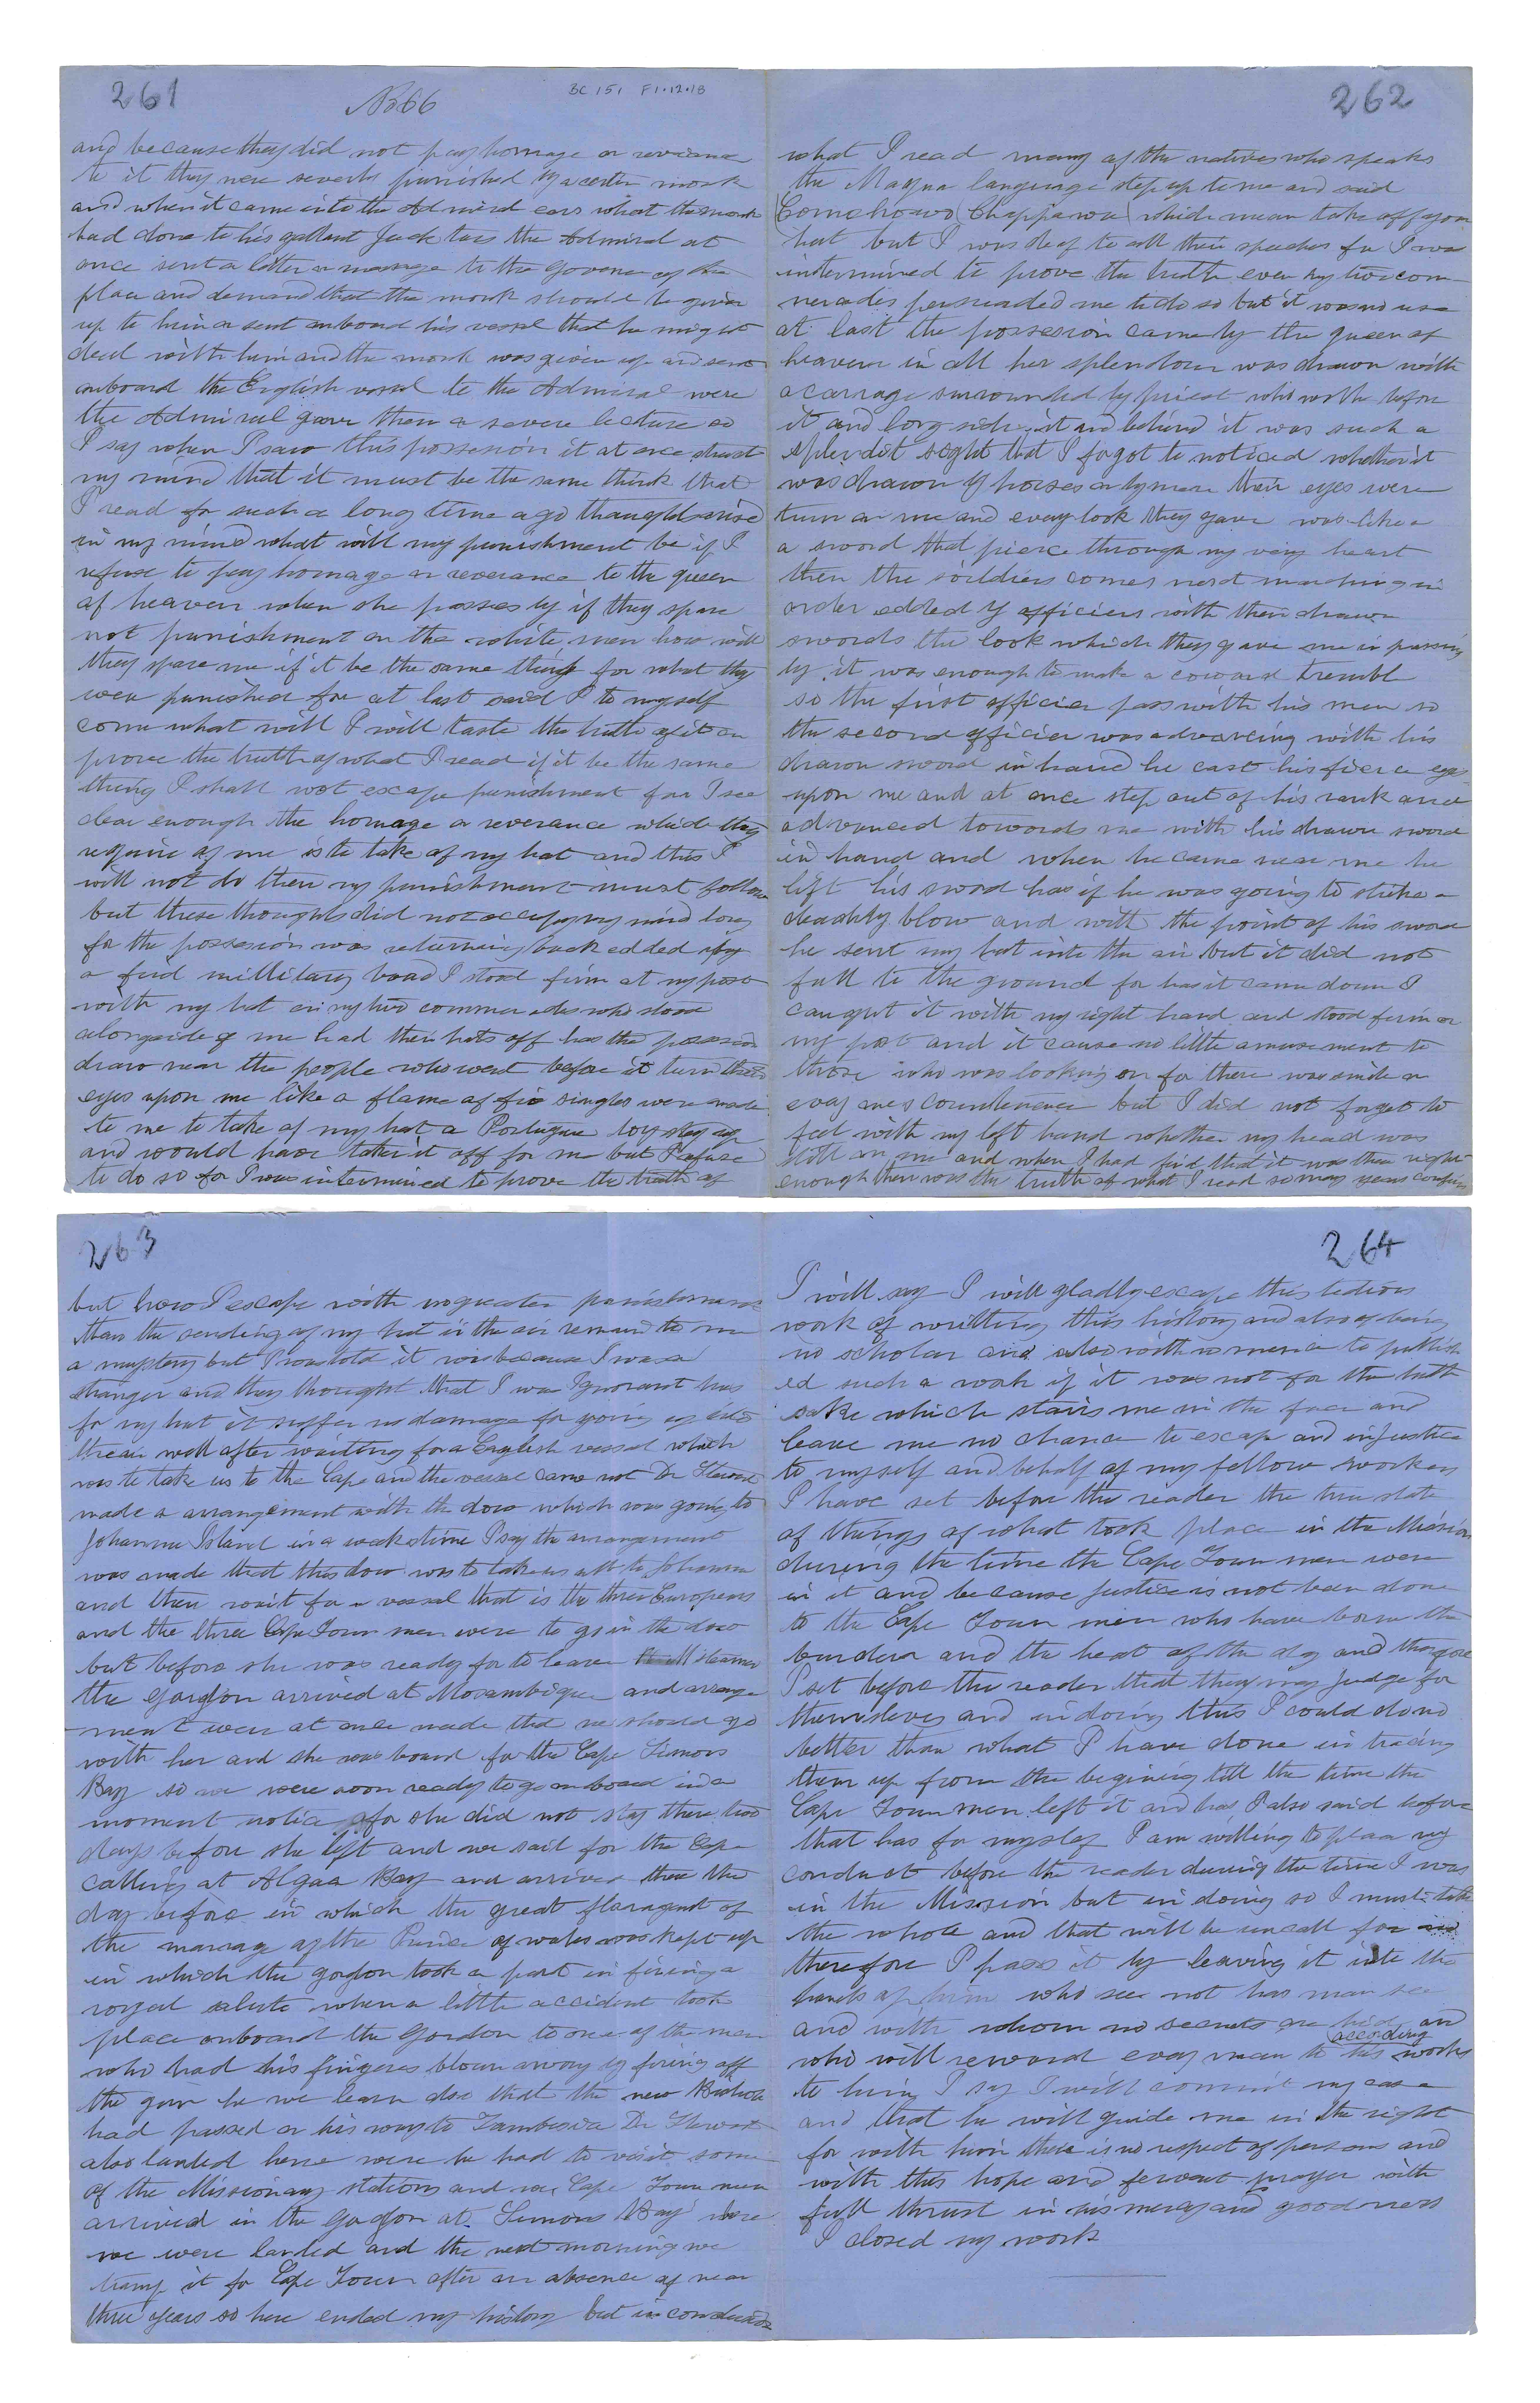 261
No 66
BC 151 F1.12.18
and because they did not pay homage or reverance
to it they were severly punished by a certin monk
and when it came into the Admiral ears what the monk
had done to his gallant Jack tars the Admiral at
once sent a letter or message to the Govener of the
place and demand that the monk should be given
up to him or sent onboard his vessel that he might
deal with him and the monk was given up and sent
onboard the English vessel to the Admiral were
the Admiral gave them a severe lecture so
I say when I saw this possesion it at once struct
my mind that it must be the same think that
I read for such a long time ago thaught arise
in my mind what will my punishment be if I
refuse to pay homage or reverance to the queen
of heaven when she passes by if they spare
not punishment on the white man how will
they spare me if it be the same thing for what they
were punished for at last said I to myself
come what will I will taste the truth of it or
prove the truth of what I read if it be the same
thing I shall not escape punishment for I see
clear enough the homage or reverance which they
require of me is to take of my hat and this I
will not do then my punishment must follow
but these thoughts did not occupy my mind long
for the possesion was returning back edded by
a full millitary band I stood firm at my post
with my hat on my two commerades who stood
alongside of me had their hats off has the possesion
draw near the people who went before it turn their
eyes upon me like a flame of fire singles were made
to me to take of my hat a Portugue boy step up
and would have taken it off for me but I refuse
to do so for I was intermined to prove the truth of
262
what I read many of the natives who speaks
the Maqua language step up to me and said
(Comchowo) (Chappawa) which mean take off your
hat but I was deaf to all their speaches for I was
intermined to prove the truth even my two com-
merades persuaded me to do so but it was no use
at last the possesion came by the queen of
heaven in all her splendour was drawn with
a carrage surrounded by priest who walk before
it and long side it and behind it was such a
splendit sight that I forgot to noticed whether it
was drawn by horses or by men their eyes were
turn on me and every look they gave was like a
a sword that pierce through my very heart
then the soildiers comes next marching in
order edded by officiers with their drawn
swords the look which they gave me in passing
by it was enough to make a coward trembl
so the first officier pass with his men so
the second officier was advancing with his
drawn sword in hand he cast his fierce eyes
upon me and at once step out of his rank and
advanced towords me with his drawn sword
in hand and when he came near me he
lift his sword has if he was going to strike a
deadly blow and with the point of his sword
he sent my hat into the air but it did not
fall to the ground for has it came down I
caught it with my right hand and stood firm on
my post and it cause no little amusement to
those who was looking on for there was smile on
evry ones countenence but I did not forget to
feel with my left hand whether my head was
still on me and when I had find that it was there right
enough then was the truth of what I read so many years confirm
263
but how I escape with no greater punishment
than the sending of my hat in the air remaind to me
a mystery but I was told it was because I was a
stranger and they thought that I was Ignorant has
for my hat it suffer no damage for going up into
the air well after waitting for a English vessel which
was to take us to the Cape and the vessel came not Dr Stewart
made a arrangement with the dow which was going to
Johanna Island in a weeks time I say the arrangement
was made that this dow was to take us all to Johanna
and then wait for a vessel that is the three Europeans
and the three Cape Town men were to go in the dow
but before she was ready for to leave M Steamer
the Gordon arrived at Mozambique and arrange
ment were at once made that we should go
with her and she was bound for the Cape Simons
Bay so we were soon ready to go onboard in a
moment notice for she did not stay there two
days before she left and we sail for the Cape
calling at Algoa Bay and arrived there the
day before in which the great of
the marrage of the Prince of wales was kept up
in which the gordon took a part in firing a
royal salute when a little accident took
place onboard the Gordon to one of the men
who had his fingers blown away by firing off
the gun he we learn also that the new Bishop
had passed on his way to Zambesia Dr Stewart
also landed here were he had to visit some
of the Missionary stations and we Cape Town men
arrived in the Gordon at Simons Bay were
we were landed and the next morning we
tramp it for Cape Town after an absence of near
three years so here ended my history but in conclusion
264
I will say I will gladly escape this tedious
work of writting this history and also of being
no scholar and also with no to publish
ed such a work if it was not for the truth
sake which stairs me in the face and
leave me no chance to escape and injustice
to myself and behalf of my fellow workers
I have set before the reader the true state
of things of what took place in the Mission
during the time the Cape Town men were
in it and because justice is not been done
to the Cape Town men who have borne the
burden and the heat of the day and therefore
I set before the reader that they may judge for
themsleves and in doing this I could do no
better than what I have done in tracing
them up from the begining till the time the
Cape Town men left it and has I also said before
that has for myslef I am willing to place my
conduct before the reader during the time I was
in the Mission but in doing so I must take
the whole and that will be uncall for
therefore I pass it by leaving it into the
hands of him who see not has man see
and with whom no secrets are hid and
who will reward evry man according to his works
to him I say I will commit my case
and that he will guide me in the right
for with him there is no respect of persons and
with this hope and fervent prayer with
full thrust in his mercy and goodness
I closed my work